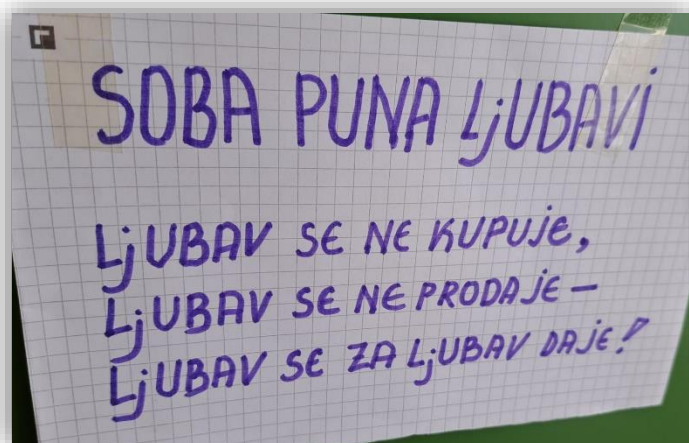 SOBA PUNA LjUBAVi
LjUBAV SE NE KUPUjE,
LjUBAV SE NE PRODAjE –
LjUBAV SE ZA LjUBAV DAjE!